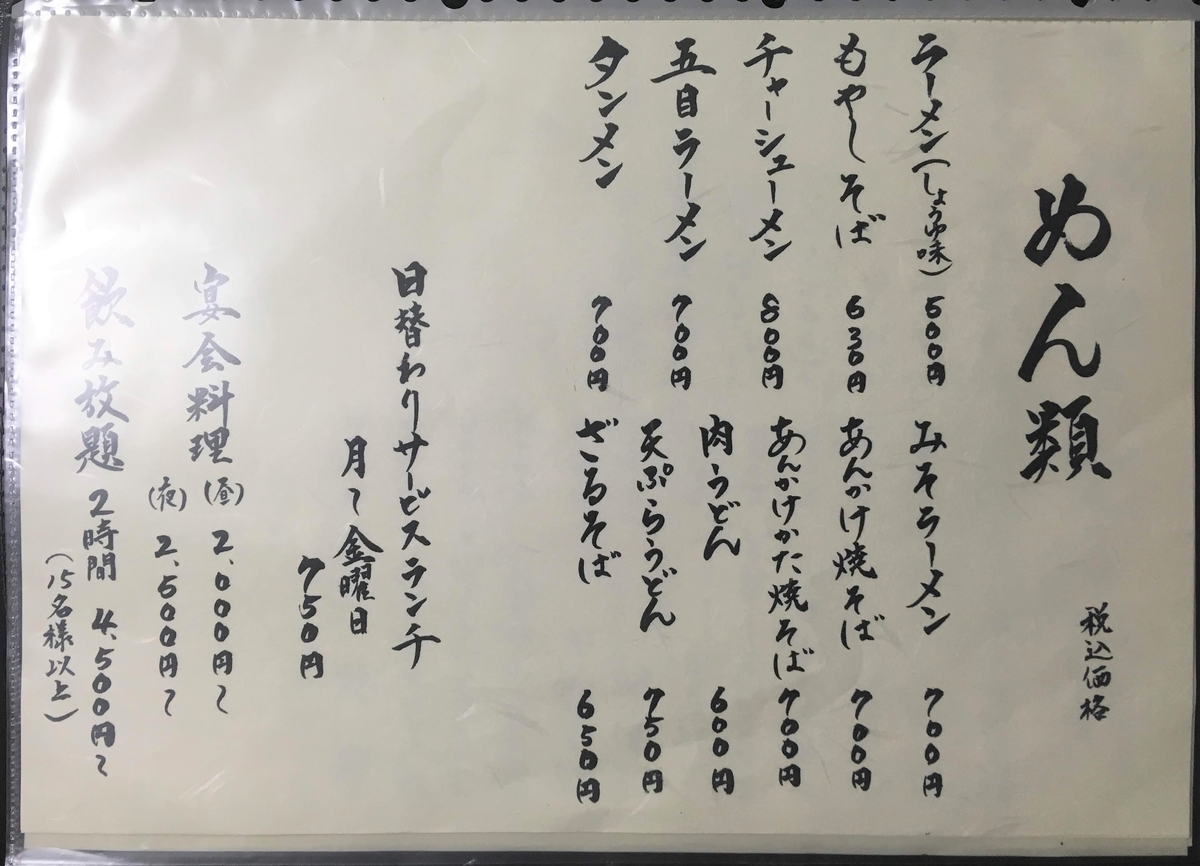 めん類
税込価格
ラーメン(しょうゆ味) 500円
もやしそば 630円
チャーシューメン 800円
五目ラーメン 700円
タンメン 700円
みそラーメン 700円
あんかけ焼そば 700円
あんかけかた焼そば 700円
肉うどん 600円
天ぷらうどん 750円
ざるそば 650円
日替わりサービスランチ
月〜金曜日
750円
宴会料理 (昼) 2,000円〜
(夜) 2,500円〜
飲み放題 2時間 4,500円〜
(15名様以上)